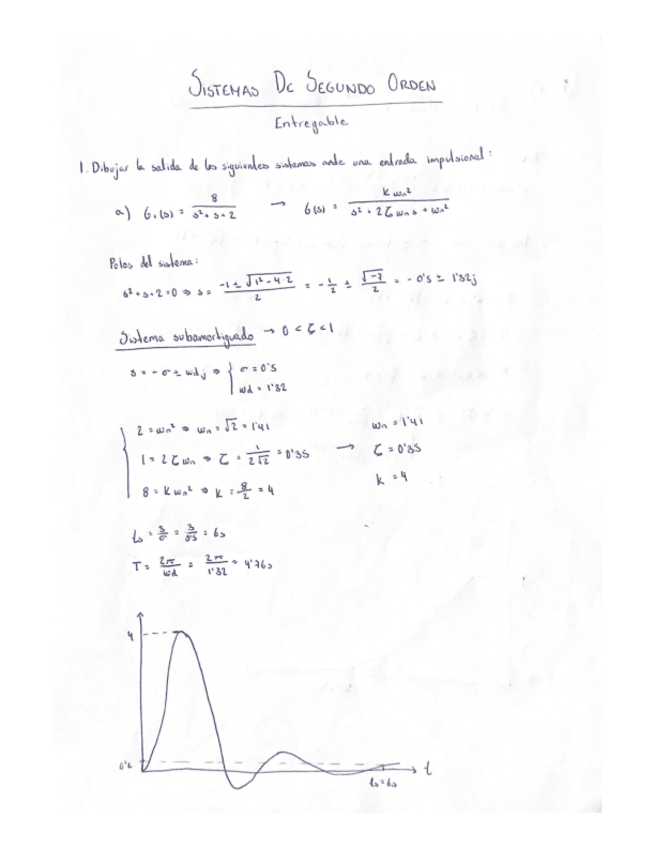 SISTEMAS DE SEGUNDO ORDEN
Entregable
1. Dibujar la salida de los siguientes sistemas ante una entrada impulsional:
a) G₁(s) = 8 / (s² + s + 2) → G(s) = K wn² / (s² + 2ζ wn s + wn²)
Polos del sistema:
s² + s + 2 = 0 ⇒ s = (-1 ± √(1² - 4·2)) / 2 = -1/2 ± √-7 / 2 = -0's ± 1'32j
Sistema subamortiguado → 0 < ζ < 1
s = -σ ± wd j ⇒ { σ = 0's
wd = 1'32
2 = wn² ⇒ wn = √2 = 1'41
1 = 2ζ wn ⇒ ζ = 1 / (2√2) = 0'35
8 = K wn² ⇒ K = 8/2 = 4
→
wn = 1'41
ζ = 0'35
K = 4
ts = 3/σ = 3/0's = 6s
T = 2π/wd = 2π/1'32 = 4'76s
4
0'2
ts = 6s
t